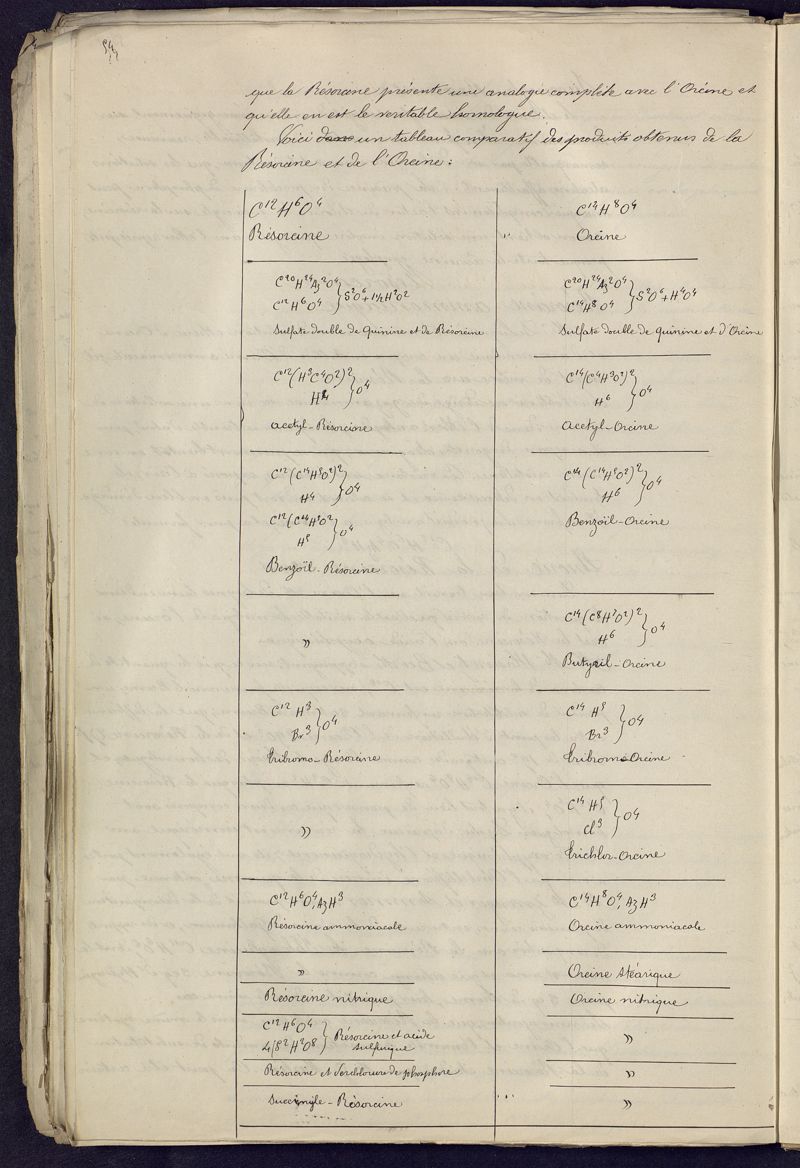 94
que la Résorcine présente une analogie complète avec l'Orcine et
qu'elle en est le veritable homologue.
Voici un tableau comparatif des produits obtenus de la
Résorcine et de l'Orcine :
C¹²H⁶O⁴
Résorcine
C¹⁴H⁸O⁴
Orcine
C²⁰H²⁴Az²O⁴
C¹²H⁶O⁴ } S²O⁶+1½H²O²
Sulfate double de Quinine et de Résorcine
C²⁰H²⁴Az²O⁴
C¹⁴H⁸O⁴ } S²O⁶+H⁴O⁴
Sulfate double de Quinine et d'Orcine
C¹²(H³C⁴O²)²
H4 } O⁴
Acetyl-Résorcine
C¹⁴(C⁴H³O²)²
H⁶ } O⁴
Acetyl-Orcine
C¹²(C¹⁴H⁵O²)²
H4 } O⁴
C¹²(C¹⁴H⁵O²
H⁵ } O⁴
Benzoïl-Résorcine
C¹⁴(C¹⁴H⁵O²)²
H⁶ } O⁴
Benzoïl-Orcine
»
C¹⁴(C⁸H⁷O²)²
H⁶ } O⁴
Butyril-Orcine
C¹² H³
Br³ } O⁴
Tribromo-Résorcine
C¹⁴ H⁵
Br³ } O⁴
Tribromo-Orcine
»
C¹⁴ H⁵
Cl³ } O⁴
Trichlor-Orcine
C¹²H⁶O⁴, AzH³
Résorcine ammoniacale
C¹⁴H⁸O⁴, AzH³
Orcine ammoniacale
»
Orcine stéarique
Résorcine nitrique
Orcine nitrique
C¹²H⁶O⁴
4S²H²O⁸ } Résorcine et acide
sulfurique
»
Résorcine et Perchlorure de phosphore
»
Succinyle-Résorcine
»